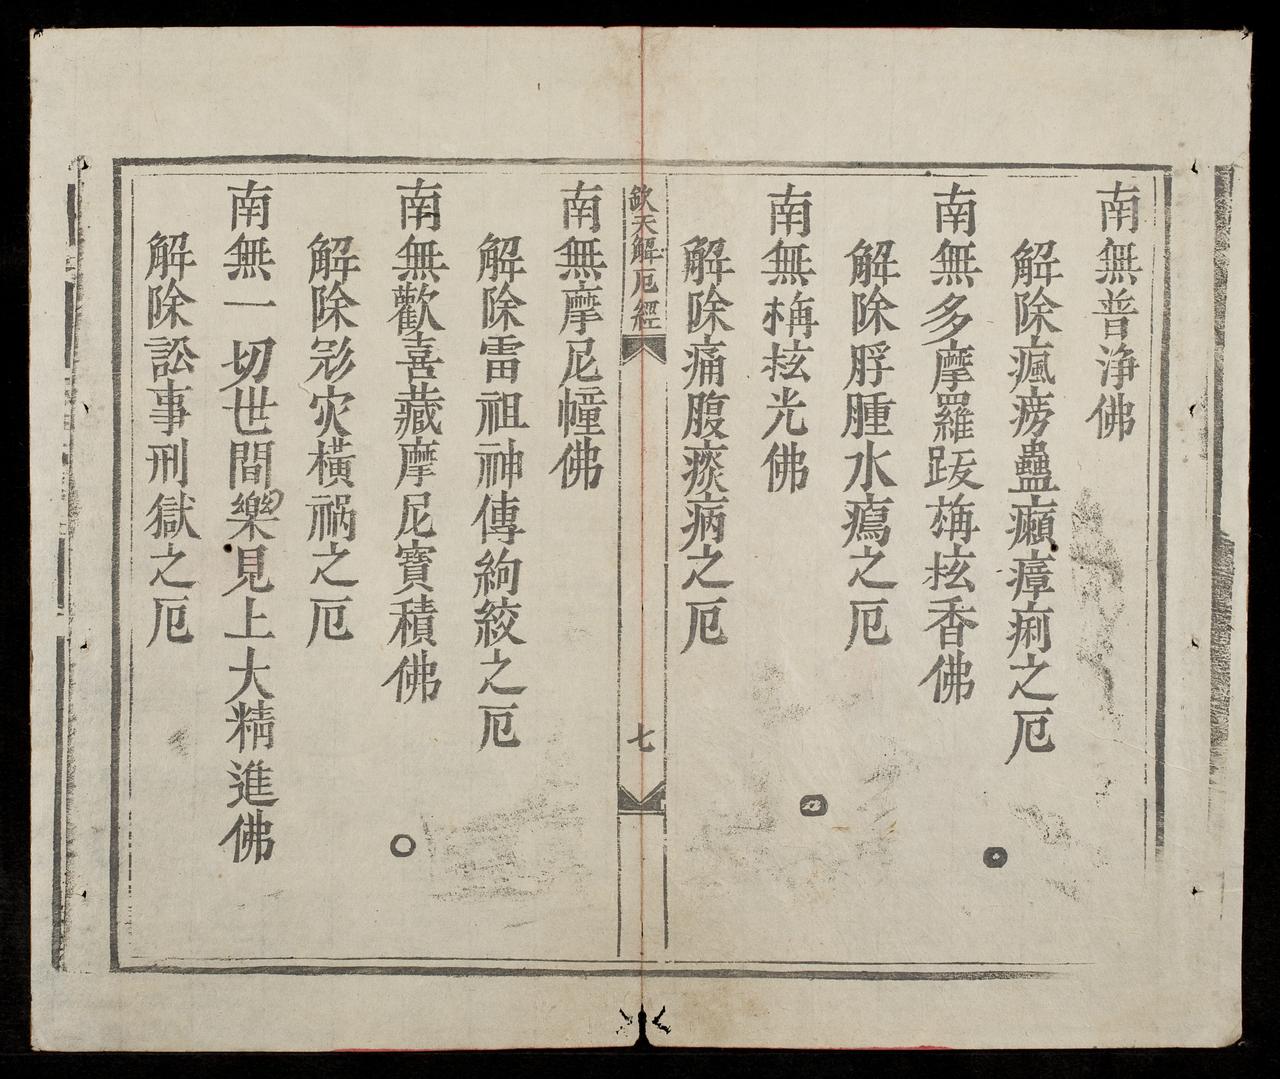 南無普淨佛
解除瘋痨蠱癩瘴痢之厄
南無多摩羅跋栴檀香佛
解除脬腫水瘑之厄
南無栴檀光佛
解除痛腹痰病之厄
欽天解厄經
七
南無摩尼幢佛
解除雷祖神傳絢絞之厄
南無歡喜藏摩尼寶積佛
解除灾橫禍之厄
南無一切世間樂見上大精進佛
解除訟事刑獄之厄